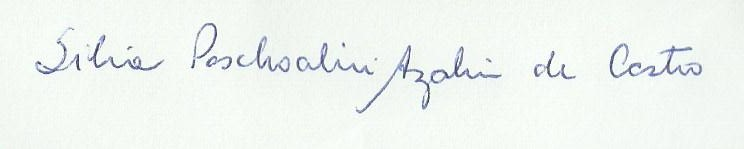 Silvia Paschoalini Azalim de Castro